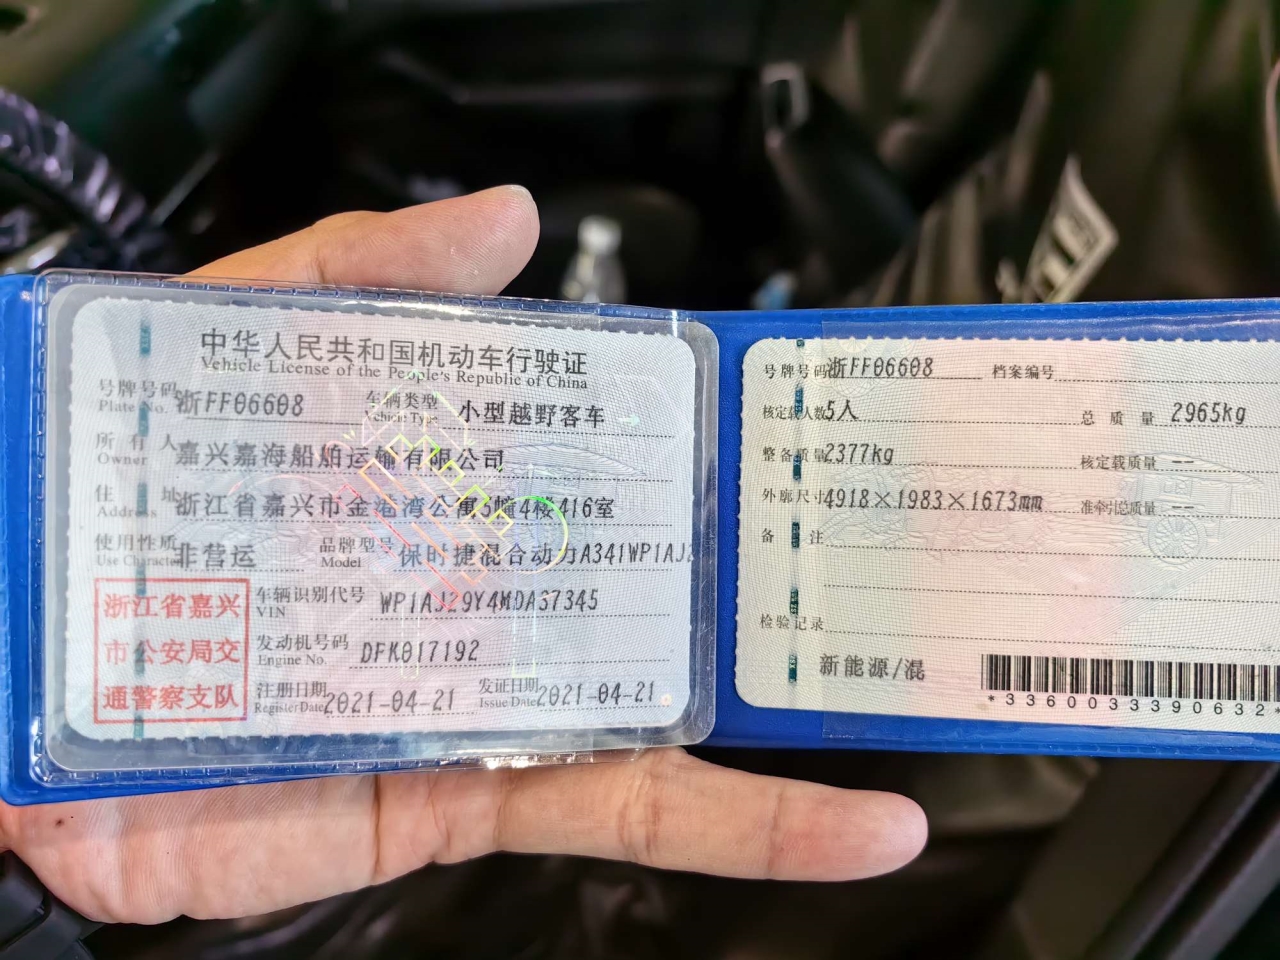 中华人民共和国机动车行驶证
Vehicle License of the People's Republic of China
号牌号码 浙FF06608 车辆类型 小型越野客车
Plate No. Vehicle Type
所有人 嘉兴嘉海船舶运输有限公司
Owner
住址 浙江省嘉兴市金港湾公寓5幢4楼416室
Address
使用性质 非营运 品牌型号 保时捷混合动力A341WP1AJ2
Use Character Model
浙江省嘉兴
市公安局交
通警察支队
车辆识别代号 WP1AJ29Y4MDA37345
VIN
发动机号码 DFK017192
Engine No.
注册日期 2021-04-21 发证日期 2021-04-21
Register Date Issue Date
号牌号码 浙FF06608 档案编号
核定载人数 5人 总质量 2965kg
整备质量 2377kg 核定载质量 --
外廓尺寸 4918×1983×1673mm 准牵引总质量 --
备注
检验记录
新能源/混
*3360033390632*